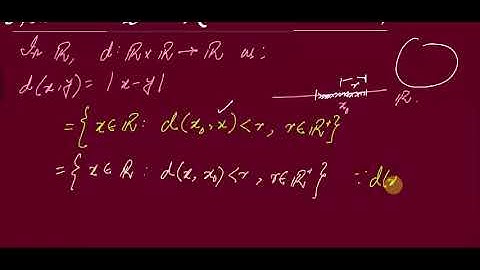 In ℝ, d: ℝ×ℝ → ℝ as;
d(x,y) = |x-y|
r
x₀
ℝ.
= { x∈ℝ : d(x₀,x) < r, r∈ℝ⁺}
= { x∈ℝ : d(x,x₀) < r, r∈ℝ⁺} ∵ d(x